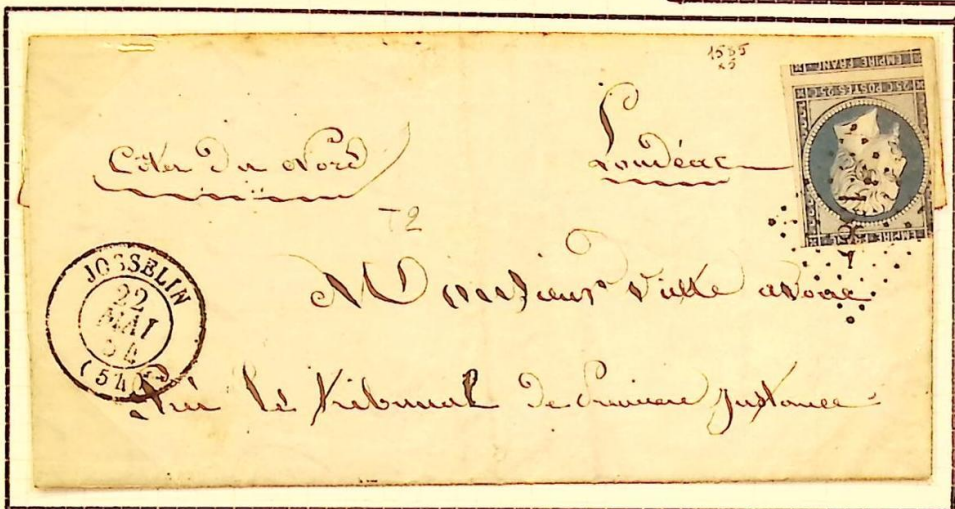 1585
25
EMPIRE FRANC
25 C POSTES 25 C
EMPIRE FRANC
Côtes du Nord
Loudéac
72
JOSSELIN
22
MAI
54
(54)
Monsieur avoué
Près le tribunal de Première Instance